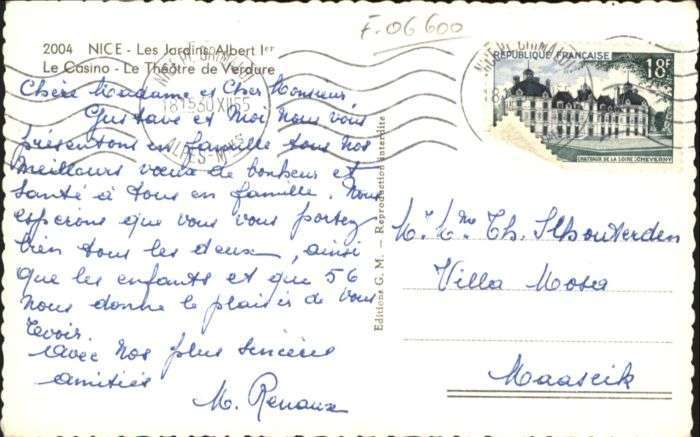 F.06600
2004 NICE - Les Jardins Albert Ier
Le Casino - Le Théâtre de Verdure
Chère Madame et Cher Monsieur,
Gustave et moi nous vous
présentons en famille tous nos
meilleurs vœux de bonheur et
santé à tous en famille. Nous
espérons que vous vous portez
bien tous les deux, ainsi
que les enfants et que 56
nous donne le plaisir de vous
revoir.
Avec nos plus sincères
amitiés
M. Renaux
Editions G. M. - Reproduction interdite
RÉPUBLIQUE FRANÇAISE
18F
CHATEAUX DE LA LOIRE : CHEVERNY
18 15 30 XII 55
ALPES-MMES
Mr. Me Th.
Villa Mosa
Maaseik